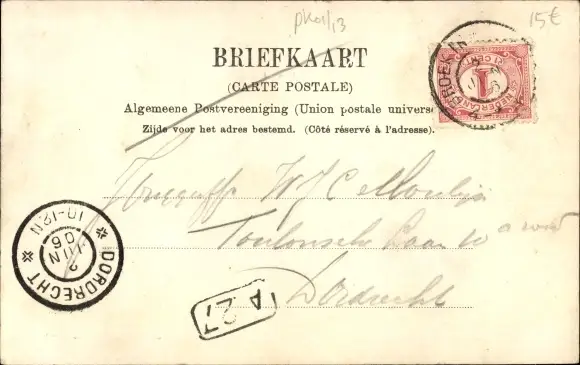 pk01/13
15€
BRIEFKAART
(CARTE POSTALE)
Algemeene Postvereeniging (Union postale univers
Zijde voor het adres bestemd. (Côté réservé à l'adresse).
BROEK IN
1 CENT
1
NEDERLAND
W J C
Toulonsche Laan 10
Dordrecht
DORDRECHT
2 JUN 06
10-12N
A 27